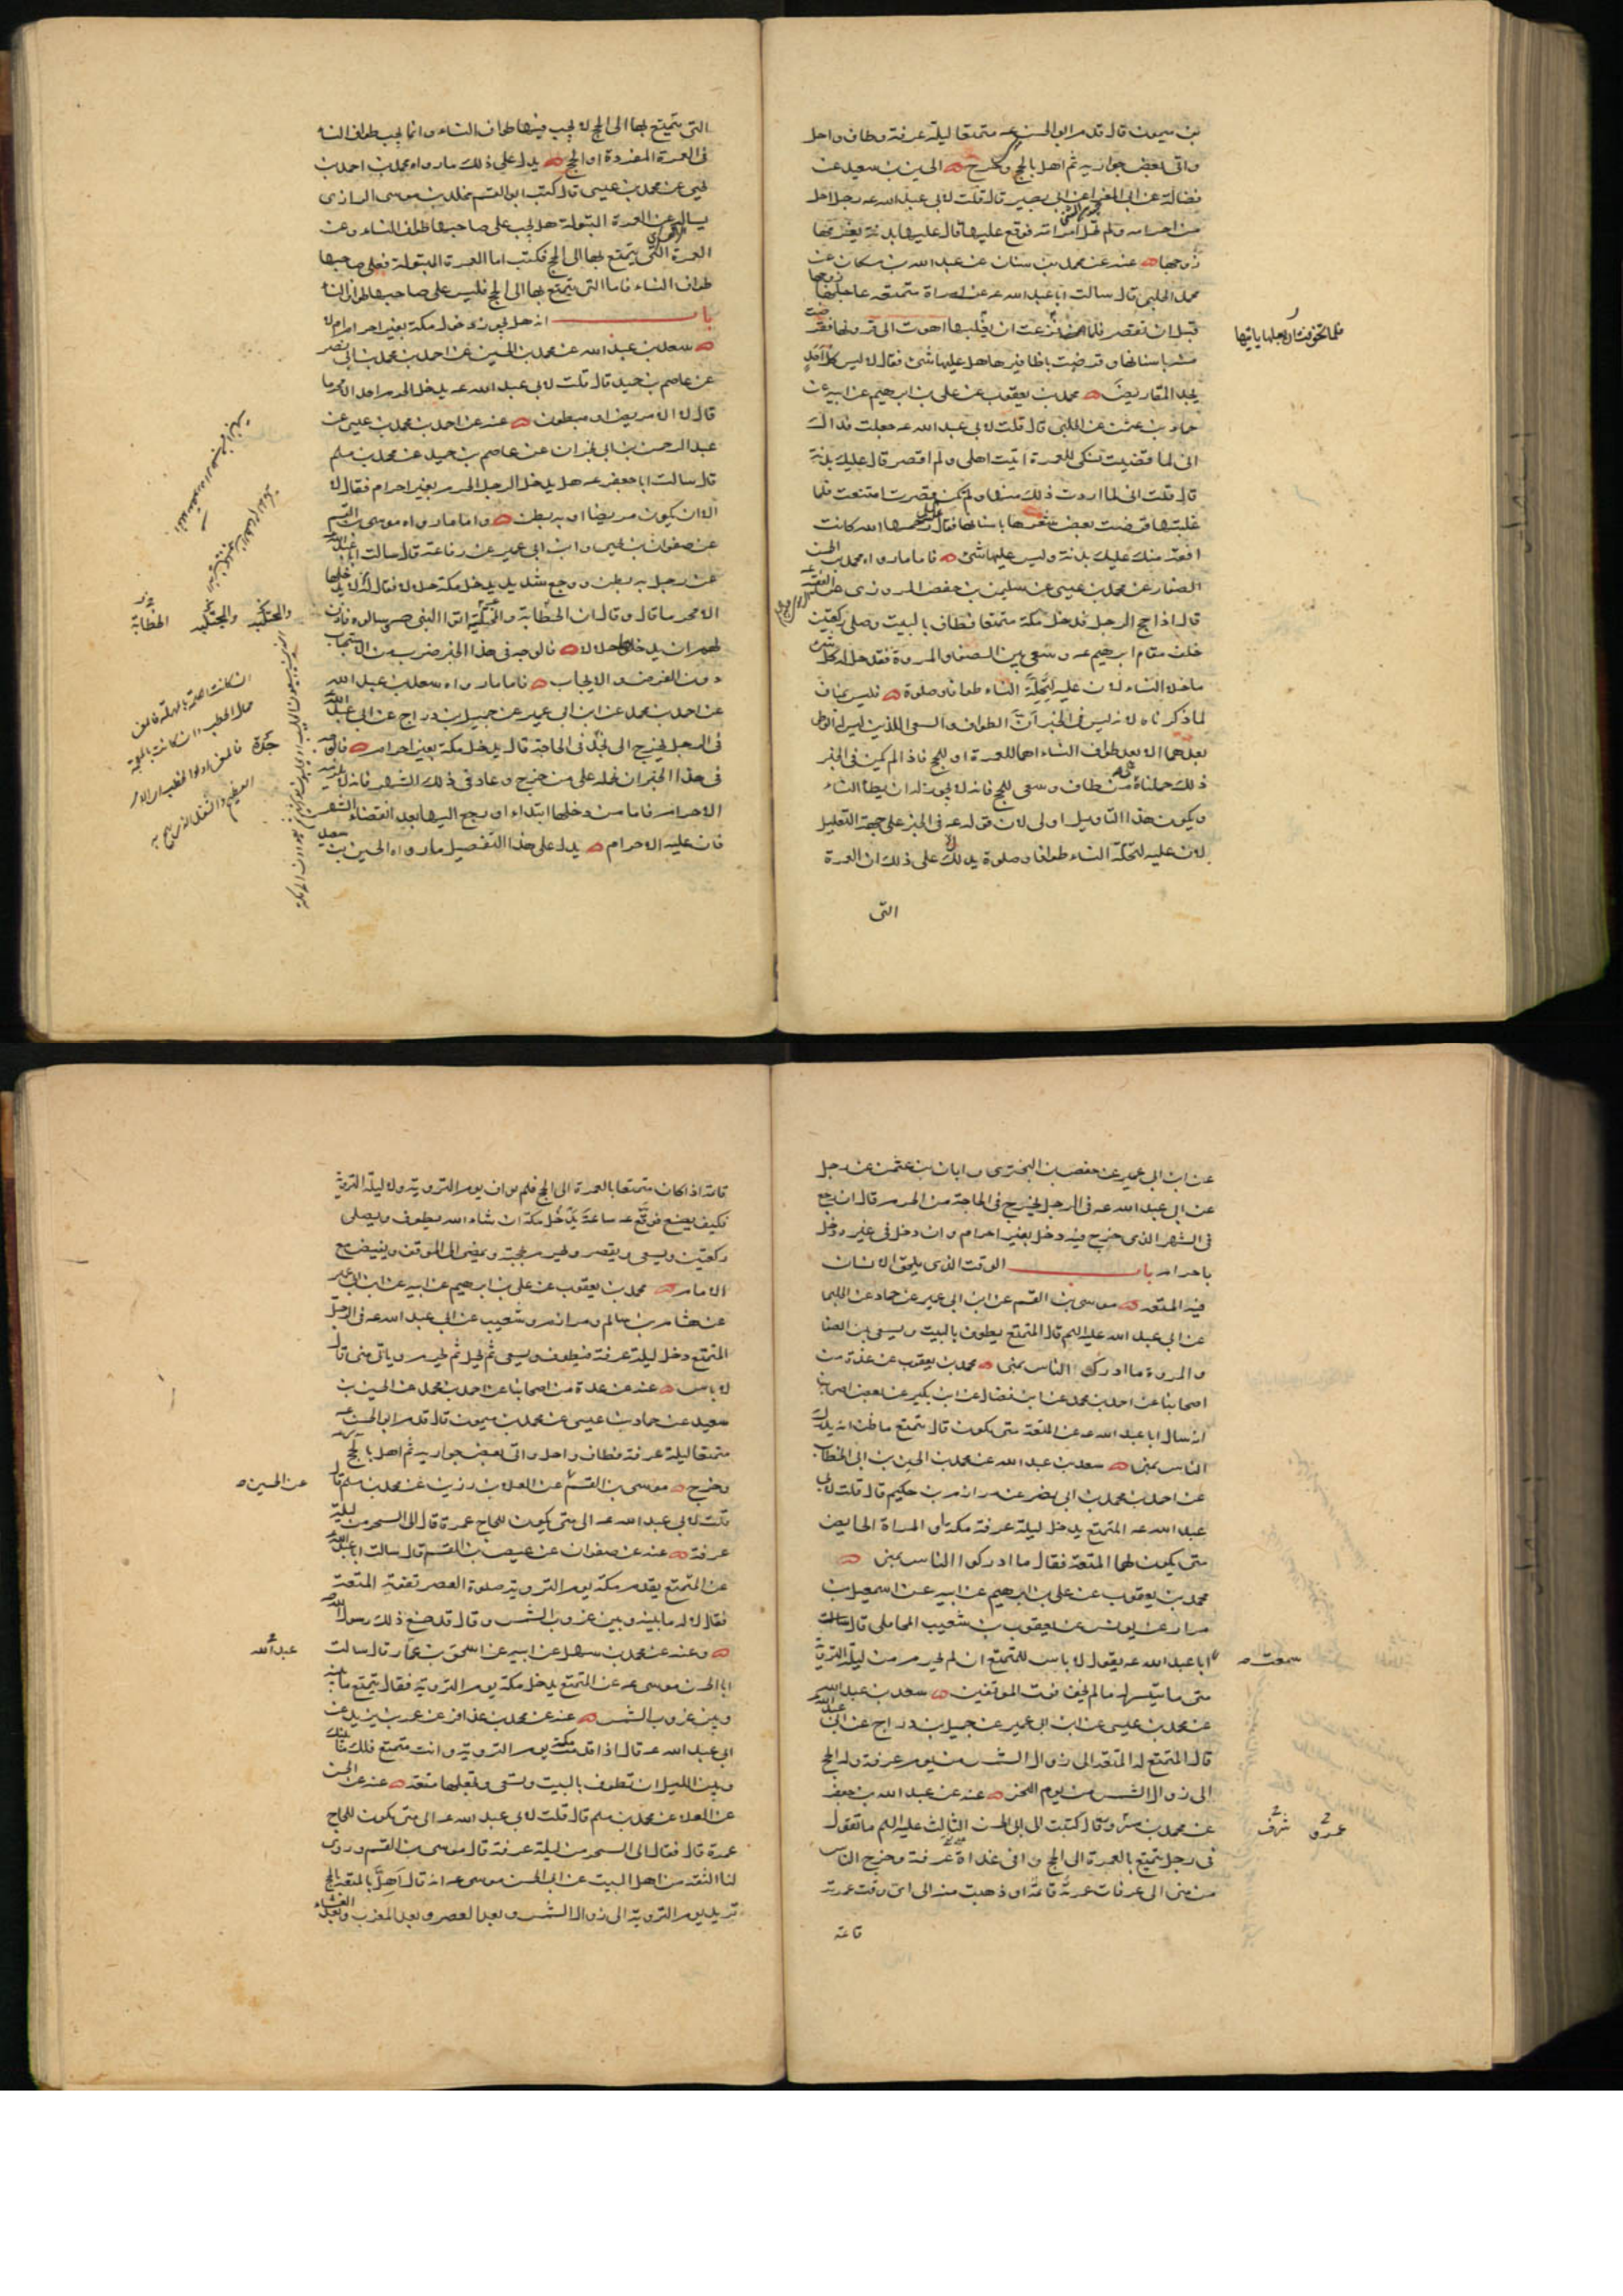 بن ميمون قال قدم ابو الحسن عه متمتعا ليلة عرفة وطاف واحل
واتى بعض جواريه ثم اهل بالحج وخرج الحسين بن سعيد عن
فضالة عن ابى المغرا عن ابى بصير قال قلت لابى عبد الله عه رجل احل
من احرامه ولم تحل امراته فوقع عليها قال عليها بدنة يغرمها
زوجها عنه عن محمد بن سنان عن عبد الله بن مسكان عن
محمد الحلبى قال سالت ابا عبد الله عه عن امراة متمتعة عاجلها زوجها
قبل ان تقصر فلما ان يغلبها اهوت الى قرونها فقرضت
منها باسنانها وقرضت باظافيرها هل عليها شئ فقال لا ليس كل احد
يجد المقاريض محمد بن يعقوب عن على بن ابرهيم عن ابيه عن
حماد بن عثمن عن الحلبى قال قلت لابى عبد الله عه جعلت فداك
انى لما قضيت نسكى للعمرة اتيت اهلى ولم اقصر قال عليك بدنة
قال قلت انى لما اردت ذلك منها ولم تكن قصرت امتنعت فلما
غلبتها قرضت بعض شعرها باسنانها فقال رحمها الله كانت
افقه منك عليك بدنة وليس عليها شئ فاما ما رواه محمد بن الحسن
الصفار عن محمد بن عيسى عن سليمن بن حفص المروزى عن الفقيه
قال اذا حج الرجل فدخل مكة متمتعا فطاف بالبيت وصلى ركعتين
خلف مقام ابرهيم عه وسعى بين الصفا والمروة فقد حل له كل شئ
ما خلا النساء لان عليه لتحلة النساء طوافا وصلوة فليس بمناف
لما ذكرناه لانه ليس فى الخبر ان الطواف والسعى اللذين ليس له الوطى
بعدهما الا بعد طواف النساء اهما للعمرة او للحج فاذا لم يكن فى الخبر
ذلك حملناه من طاف وسعى للحج فانه لا يجوز له ان يطا النساء
ويكون هذا التاويل اولى لان قوله عه فى الخبر على جهة التعليل
لان عليه لتحلة النساء طوافا وصلوة يدل على ذلك ان العمرة
التى
فلما تخوفت ان يغلبها يا تيها
التى يتمتع بها الى الحج لا يجب فيها طواف النساء وانما يجب طواف النساء
فى العمرة المفردة او الحج يدل على ذلك ما رواه محمد بن احمد بن
يحيى عن محمد بن عيسى قال كتب ابو القسم مخلد بن موسى الرازى
يساله عن العمرة المبتولة هل يجب على صاحبها طواف النساء وعن
العمرة التى يتمتع بها الى الحج فكتب اما العمرة المبتولة فعلى صاحبها
طواف النساء فاما التى يتمتع بها الى الحج فليس على صاحبها طواف النساء
باب انه هل يجوز دخول مكة بغير احرام ام لا
سعد بن عبد الله عن محمد بن الحسين عن احمد بن محمد بن ابى نصر
عن عاصم بن حميد قال قلت لابى عبد الله عه يدخل الحرم احد الا محرما
قال لا الا مريض او مبطون عنه عن احمد بن محمد بن عيسى عن
عبد الرحمن بن ابى نجران عن عاصم بن حميد عن محمد بن مسلم
قال سالت ابا جعفر عه هل يدخل الرجل الحرم بغير احرام فقال لا
الا ان يكون مريضا او به بطن واما ما رواه موسى بن القسم
عن صفوان بن يحيى وابن ابى عمير عن رفاعة قال سالت ابا عبد الله
عن رجل به بطن ووجع شديد يدخل مكة حلالا فقال لا يدخلها
الا محرما قال وقال ان الحطابة اتوا النبى صم سالوه فاذن
لهم ان يدخلوا حلالا فالوجه فى هذا الخبر ضرب من الاستحباب
دون الفرض والايجاب فاما ما رواه سعد بن عبد الله
عن احمد بن محمد عن ابن ابى عمير عن جميل بن دراج عن ابى عبد الله
فى الرجل يخرج الى نجد فى الحاجة قال يدخل مكة بغير احرام فالوجه
فى هذا الخبر ان نحمله على من خرج وعاد فى ذلك الشهر فانه لا يلزمه
الاحرام فاما من دخلها ابتداء او رجع اليها بعد انقضاء الشهر
فان عليه الاحرام يدل على هذا التفصيل ما رواه الحسين بن سعيد
عن ابن ابى عمير عن حفص بن البخترى وابان بن عثمن عن رجل
عن ابى عبد الله عه فى الرجل يخرج فى الحاجة من الحرم قال ان رجع
فى الشهر الذى خرج فيه دخل بغير احرام وان دخل فى غيره دخل
باحرام باب الوقت الذى يلحق الانسان
فيه المتعة موسى بن القسم عن ابن ابى عمير عن حماد عن الحلبى
عن ابى عبد الله عليه السلم قال المتمتع يطوف بالبيت ويسعى بين الصفا
والمروة ما ادرك الناس بمنى محمد بن يعقوب عن عدة من
اصحابنا عن احمد بن محمد عن ابن فضال عن ابن بكير عن بعض اصحابنا
انه سال ابا عبد الله عه عن المتعة متى تكون قال يتمتع ما ظن انه يدرك
الناس بمنى سعد بن عبد الله عن محمد بن الحسين بن ابى الخطاب
عن احمد بن محمد بن ابى نصر عن مرازم بن حكيم قال قلت لابى
عبد الله عه المتمتع يدخل ليلة عرفة مكة او المراة الحايض
متى يكون لهما المتعة فقال ما ادركوا الناس بمنى
محمد بن يعقوب عن على بن ابرهيم عن ابيه عن اسمعيل بن
مرار عن يونس عن يعقوب بن شعيب المحاملى قال سالت
ابا عبد الله عه يقول لا باس للمتمتع ان لم يحرم من ليلة التروية
متى ما تيسر له ما لم يخف فوت الموقفين سعد بن عبد الله
عن محمد بن عيسى عن ابن ابى عمير عن جميل بن دراج عن ابى عبد الله
قال المتمتع له المتعة الى زوال الشمس من يوم عرفة وله الحج
الى زوال الشمس من يوم النحر عنه عن عبد الله بن جعفر
عن محمد بن سرو قال كتبت الى ابى الحسن الثالث عليه السلم ما تقول
فى رجل يتمتع بالعمرة الى الحج وافى غداة عرفة وخرج الناس
من منى الى عرفات عمرته قائمة او ذهبت منه الى اى وقت عمرته
قائمة
سمعت
قائمة اذا كان متمتعا بالعمرة الى الحج فلم يواف يوم التروية ولا ليلة التروية
فكيف يصنع فوقع عه ساعة يدخل مكة ان شاء الله يطوف ويصلى
ركعتين ويسعى ويقصر ويحرم بحجته ويمضى الى الموقف ويفيض مع
الامام محمد بن يعقوب عن على بن ابرهيم عن ابيه عن ابن ابى عمير
عن هشام بن سالم ومرازم وشعيب عن ابى عبد الله عه فى الرجل
المتمتع دخل ليلة عرفة فيطوف ويسعى ثم يحل ثم يحرم وياتى منى قال
لا باس عنه عن عدة من اصحابنا عن احمد بن محمد عن الحسين بن
سعيد عن حماد بن عيسى عن محمد بن ميمون قال قدم ابو الحسن عه
متمتعا ليلة عرفة فطاف واحل واتى بعض جواريه ثم اهل بالحج
وخرج موسى بن القسم عن العلا بن رزين عن محمد بن مسلم قال
قلت لابى عبد الله عه الى متى يكون للحاج عمرة قال الى السحر من ليلة
عرفة عنه عن صفوان عن عيص بن القسم قال سالت ابا عبد الله
عن المتمتع يقدم مكة يوم التروية صلوة العصر تفوته المتعة
فقال لا له ما بينه وبين غروب الشمس وقال قد صنع ذلك رسول الله
وعنه عن محمد بن سهل عن ابيه عن اسحق بن عمار قال سالت
ابا الحسن موسى عه عن المتمتع يدخل مكة يوم التروية فقال يتمتع ما بينه
وبين غروب الشمس عنه عن محمد بن عذافر عن عمر بن يزيد عن
ابى عبد الله عه قال اذا قدمت مكة يوم التروية وانت متمتع فلك ما بينك
وبين الليل ان تطوف بالبيت وتسعى وتجعلها متعة عنه عن الحسن
عن العلا عن محمد بن مسلم قال قلت لابى عبد الله عه الى متى يكون للحاج
عمرة قال فقال الى السحر من ليلة عرفة قال موسى بن القسم وروى
لنا الثقة من اهل البيت عن ابى الحسن موسى عه انه قال اهل بالمتعة بالحج
تريد يوم التروية الى زوال الشمس وبعد العصر وبعد المغرب وبعد العشاء
عن الحسن
عبد الله